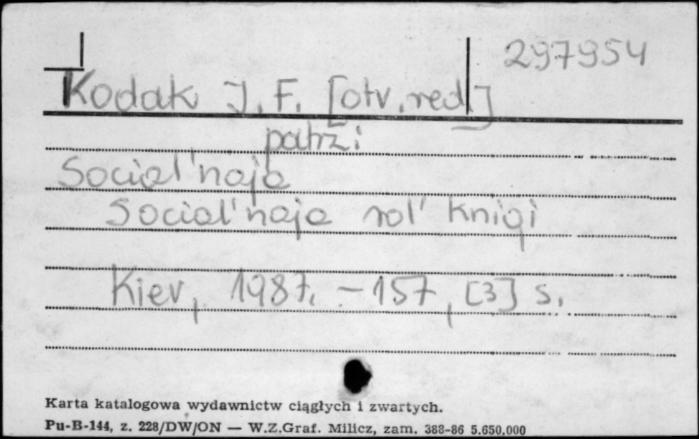 297954
Kodak J. F. [otv. red.]
patrz:
Social'naja
Social'naja rol' knigi
Kiev, 1987. - 157, [3] s.
Karta katalogowa wydawnictw ciągłych i zwartych.
Pu-B-144, z. 228/DW/ON — W.Z.Graf. Milicz, zam. 388-86 5.650.000